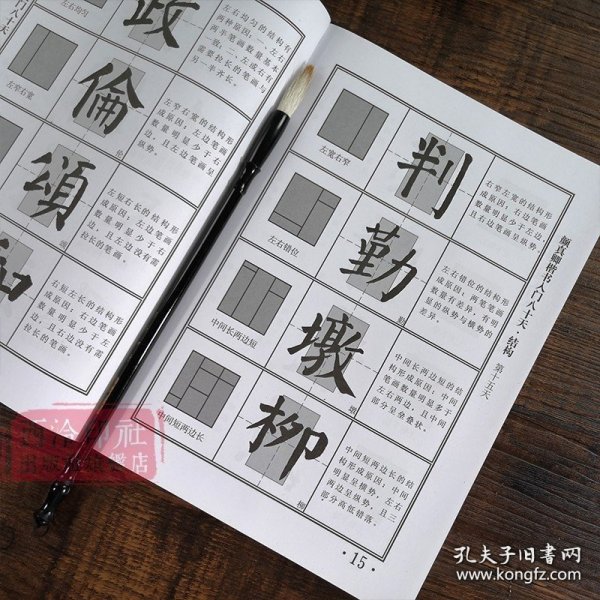 左右均匀
政
左右均匀的结构有
两种原因：一、左右
两半笔画数量基本
一致；二、左或右有
需要拉长的笔画与
另一半齐长。
左窄右宽
倫
伦
左窄右宽的结构形
成原因：左边笔画
数量明显少于右
边，且左边笔画呈
纵势。
頌
颂
左短右长的结构形
成原因：左边笔画
数量明显少于右
边，且左边没有需
拉长的笔画。
和
右短左长的结构形
成原因：右边笔画
数量明显少于左
边，且右边没有需
拉长的笔画。
左宽右窄
判
右窄左宽的结构形
成原因：右边笔画
数量明显少于左边，
且右边笔画呈纵势。
左右错位
勤
勤
左右错位的结构形
成原因：两边笔画
数量有差异，有明
显的纵势与横势的
差异。
中间长两边短
墩
墩
中间长两边短的结
构形成原因：中间
笔画数量明显多于
左右两边，且中间
部分呈叠状。
中间短两边长
柳
柳
中间短两边长的结
构形成原因：中间
明显呈横势，左右
两边呈纵势，且三
部分高低错落。
颜真卿楷书入门八十天 结构 第十五天
·15·
西泠印社
出版社旗舰店
孔夫子旧书网
www.kongfz.com